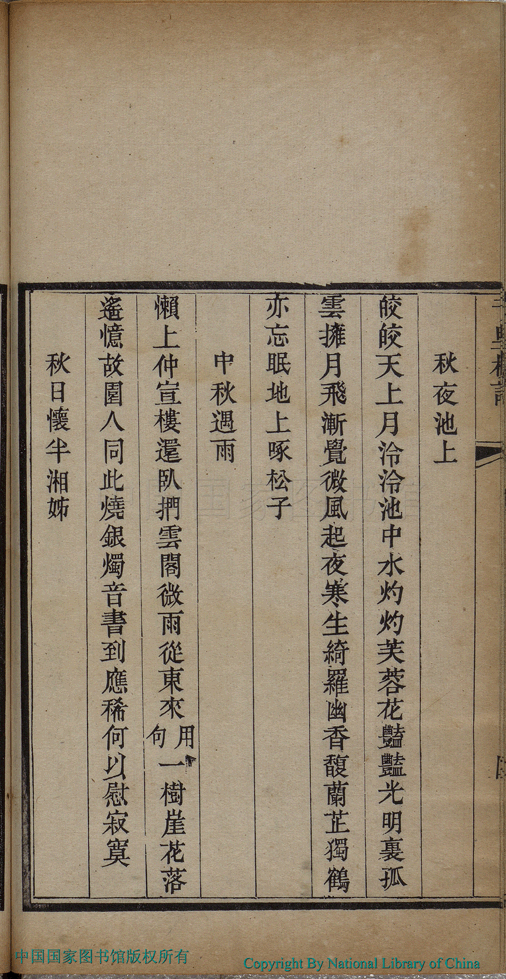 秋夜池上
皎皎天上月泠泠池中水灼灼芙蓉花豔豔光明裏孤
雲擁月飛漸覺微風起夜寒生綺羅幽香馥蘭芷獨鶴
亦忘眠地上啄松子
中秋遇雨
懶上仲宣樓還臥捫雲閣微雨從東來用句一樹崖花落
遙憶故園人同此燒銀燭音書到應稀何以慰寂寞
秋日懷半湘姊
中国国家图书馆版权所有
Copyright By National Library of China